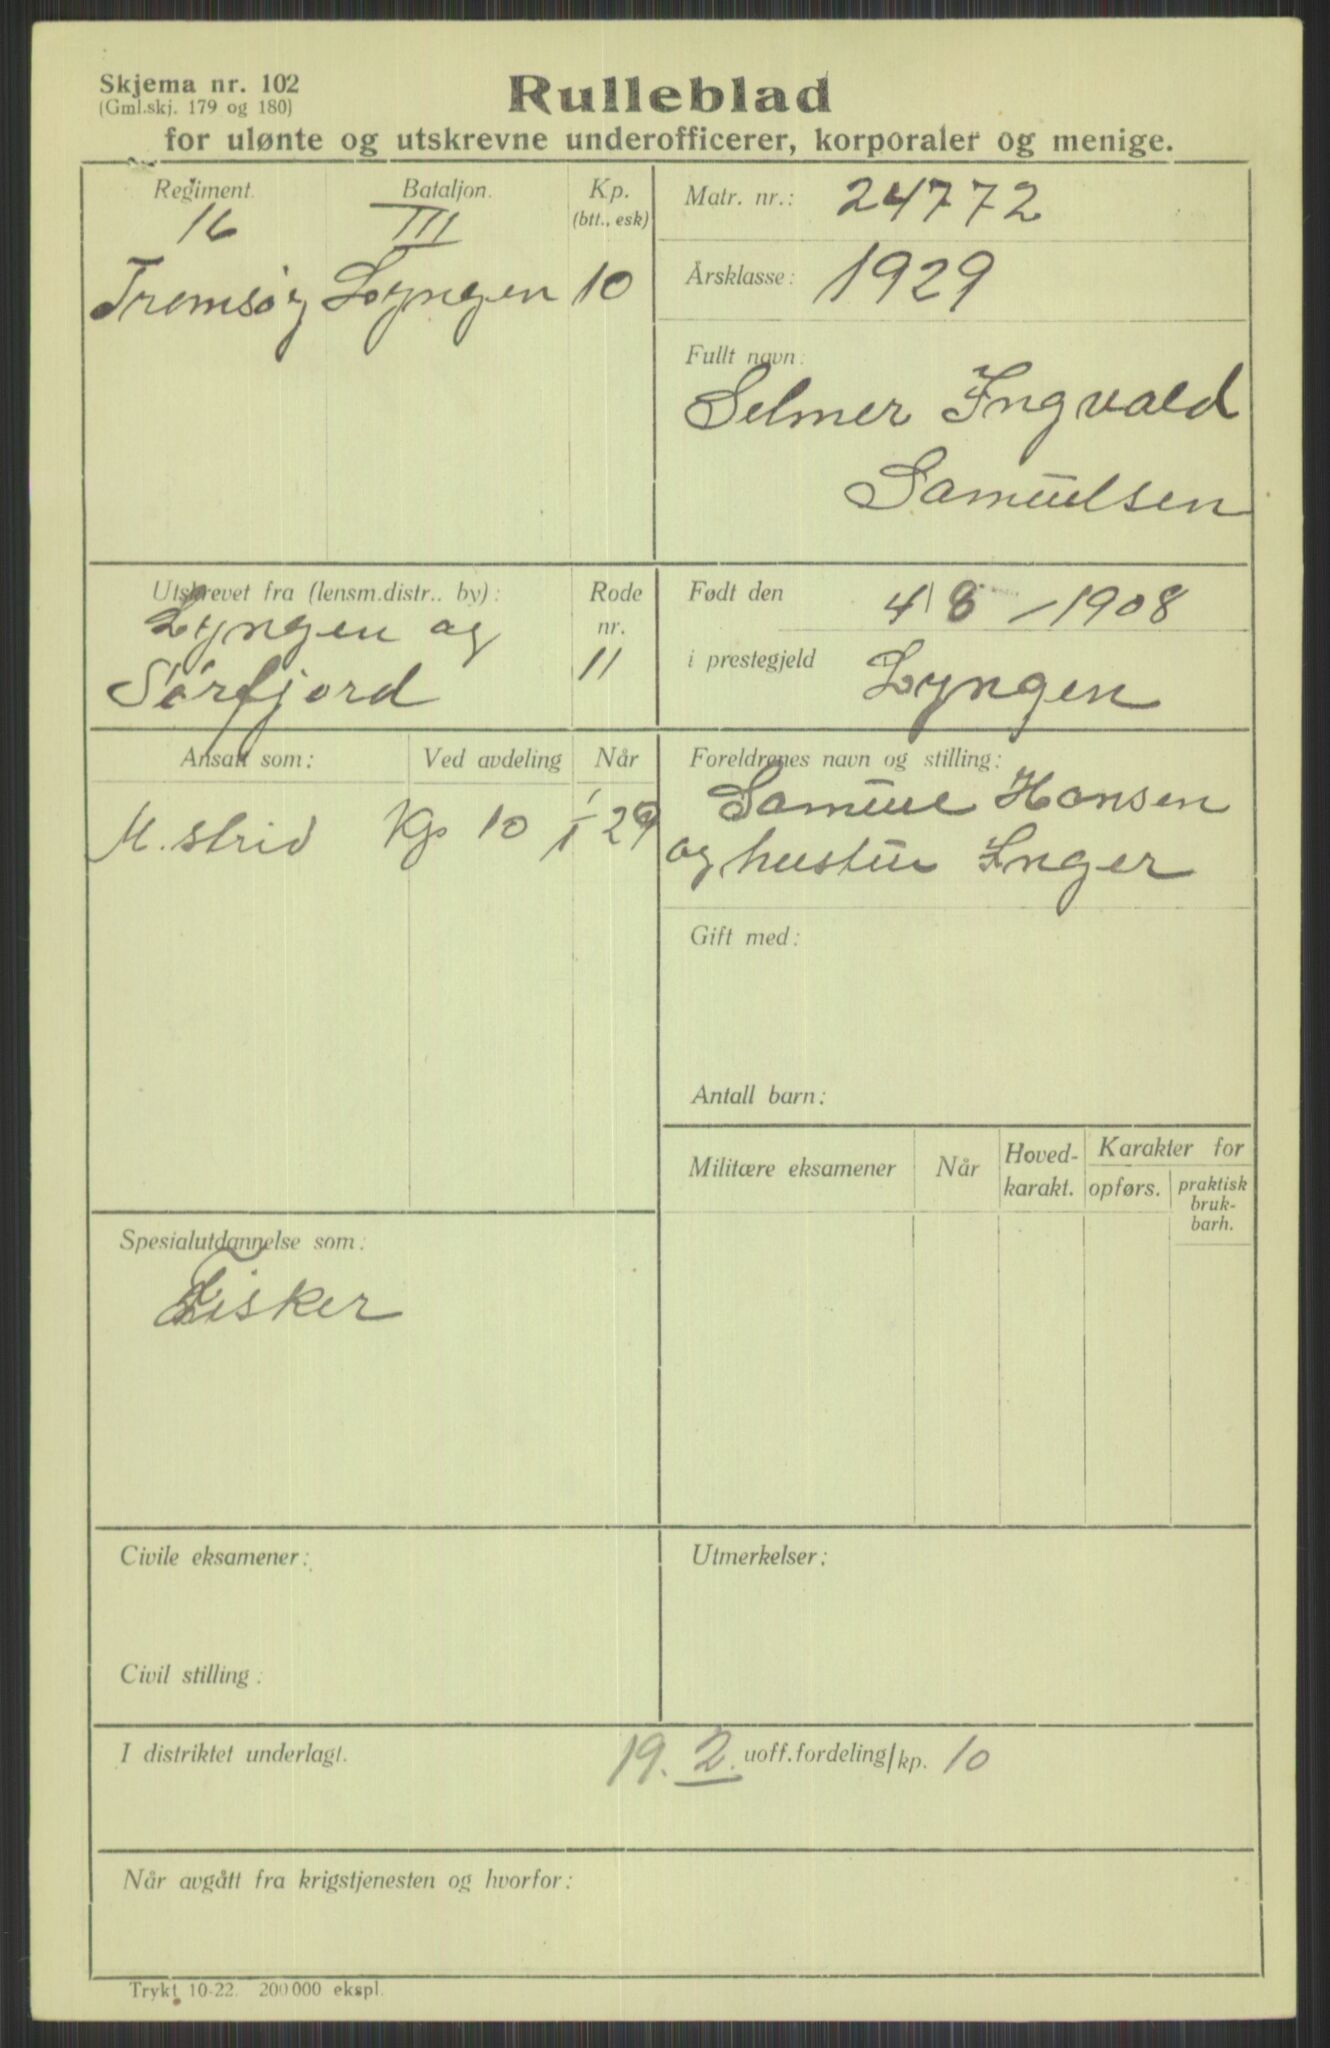 Skjema nr. 102
(Gml.skj. 179 og 180)
Rulleblad
for ulønte og utskrevne underofficerer, korporaler og menige.
Regiment. Bataljon. Kp.
(btt., esk)
16 III
Tromsøy Lyngen 10
Matr. nr.: 24772
Årsklasse: 1929
Fullt navn:
Selmer Ingvald
Samuelsen
Utskrevet fra (lensm.distr.. by): Rode
nr.
Lyngen og
Sörfjord 11
Født den 4/8 - 1908
i prestegjeld Lyngen
Ansatt som: Ved avdeling Når
M. strid Kp 10 1/1 29
Foreldrenes navn og stilling:
Samuel Hansen
og hustru Inger
Gift med:
Antall barn:
Militære eksamener Når Hoved-
karakt. Karakter for
opførs. praktisk
bruk-
barh.
Spesialutdannelse som:
Fisker
Civile eksamener:
Civil stilling:
Utmerkelser:
I distriktet underlagt. 19. 2. uoff.fordeling/kp. 10
Når avgått fra krigstjenesten og hvorfor:
Trykt 10-22. 200 000 ekspl.